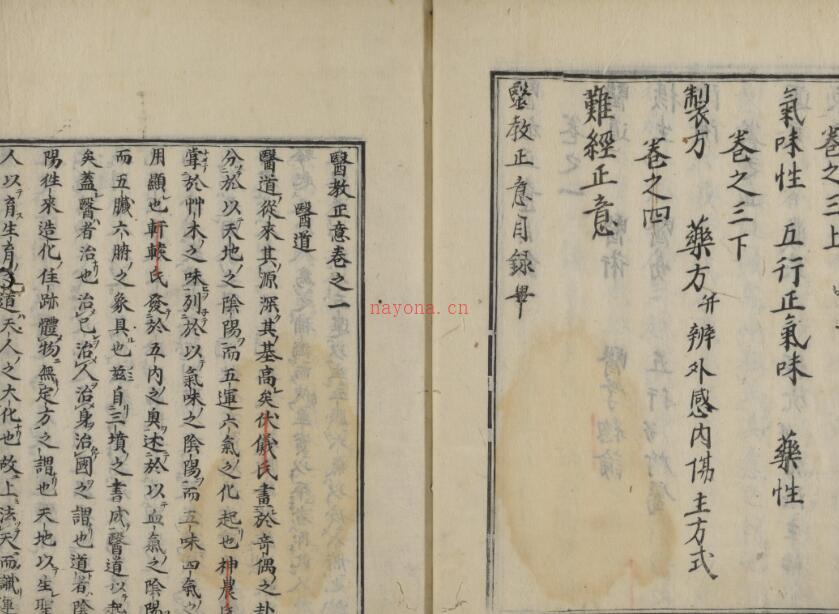 卷之三上
氣味性 五行正氣味 藥性
卷之三下
製方 藥方并辨外感內傷主方式
卷之四
難經正意
醫教正意目錄畢
醫教正意卷之一
醫道
醫道從來其源深其基高矣伏儀氏畫於奇偶之卦
分於以天地之陰陽而五運六氣之化起也神農氏
嘗於艸木之味列於以氣味之陰陽而五味四氣之
用顯也軒轅氏發於五內之奧述於以血氣之陰陽
而五臟六腑之象具也茲自三墳之書成醫道以起
矣蓋醫者治也治已治人治身治國之謂也道者陰
陽往來造化住跡體物無定方之謂也天地以生聖
人以育生育道天人之大化也故上法天而識運
nayona.cn